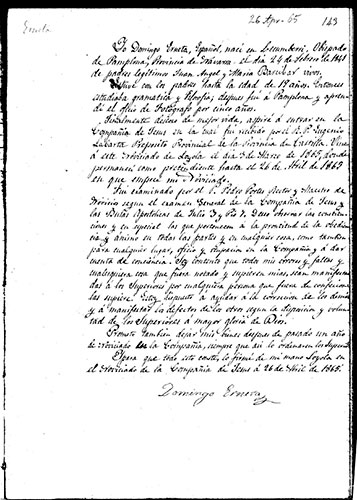 Erneta
26 Apr. 65
143
Yo Domingo Erneta, Español, nací en Lecumberri, Obispado
de Pamplona, Provincia de Navarra. el dia 24 de Febrero de 1841
de padres legítimos Juan Angel y Maria Baraibar vivos.
Estuve con los padres hasta la edad de 19 años. Entonces
estudiaba gramatica y filosofia; despues fuí á Pamplona y apren-
dí el oficio de Fotógrafo por cinco años.
Finalmente deseoso de mejor vida, aspiré á entrar en la
Compañia de Jesus en la cual fuí recibido por el R. P. Eugenio
Labarta Preposito Provincial de la Provincia de Castilla. Vine
á este Noviciado de Loyola el dia 3 de Marzo de 1865, donde
permanecí como pretendiente hasta el 26 de Abril de 1865
en que empecé mi Noviciado.
Fuí examinado por el P. Pedro Portes Rector y Maestro de
Novicios segun el examen General de la Compañia de Jesus y
las Bulas Apostolicas de Julio 3 y Pio V. Deseo observar las constitu-
ciones y en especial las que pertenecen á la prontitud de la obedien-
cia y ánimo en todas las partes y en cualquier cosa, como tambien
para cualquier lugar, oficio y ocupacion en la Compañia y á dar
cuenta de conciencia. Soy contento que todos mis errores y faltas y
cualesquiera cosa que fuera notada y supiesen mias, sean manifesta-
das á los Superiores por cualquiera persona que fuera de confesion
las supiere. Estoy dispuesto á ayudar á la correccion de los demas
y á manifestar los defectos de los otros segun la disposicion y volun-
tad de los Superiores á mayor gloria de Dios.
Prometo tambien dejar mis bienes despues de pasado un año
de noviciado en la Compañia, siempre que así lo ordenaren los Superiores.
Para que todo esto conste, lo firmé de mi mano Loyola en
el Noviciado de la Compañia de Jesus á 26 de Abril de 1865.
Domingo Erneta